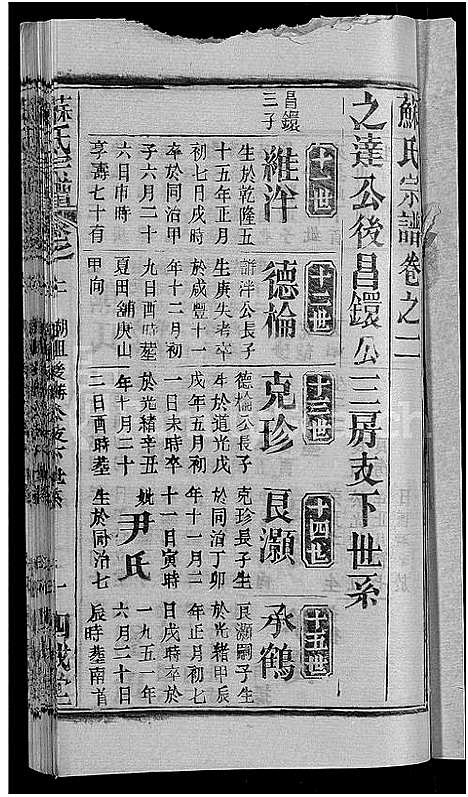 蘇氏宗譜卷之二
之達公後昌鐶公三房支下世系
昌鐶
三子
十一世
維泮
生於乾隆五
十五年正月
初七日戌時
卒於同治甲
子六月二十
六日申時
享壽七十有
十二世
德棆
泮公長子
生庚失考卒
於咸豐十一
年十二月初
九日酉時塟
夏田舖庚山
甲向
十三世
克珍
德棆公長子
生於道光戊
戌年五月初
一日未時卒
於光緒辛丑
年十月二十
二日酉時塟
十四世
良灝
克珍長子生
於同治丁卯
年十一月二
十一日寅時
妣尹氏
生於同治七
十五世
承鶴
良灝嗣子生
於光緒甲辰
年正月初七
日戌時卒於
一九五一年
六月二十日
辰時塟南首